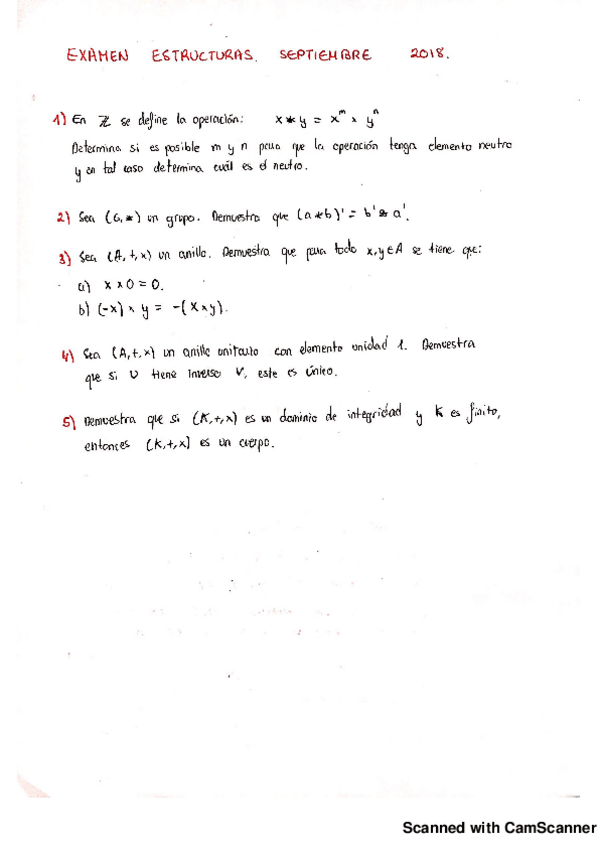 EXAMEN ESTRUCTURAS. SEPTIEMBRE 2018.
1) En ℤ se define la operación: x * y = x^m × y^n
Determina si es posible m y n para que la operación tenga elemento neutro
y en tal caso determina cuál es el neutro.
2) Sea (G, *) un grupo. Demuestra que (a * b)' = b' * a'.
3) Sea (A, +, ×) un anillo. Demuestra que para todo x, y ∈ A se tiene que:
a) x × 0 = 0.
b) (-x) × y = -(x × y).
4) Sea (A, +, ×) un anillo unitario con elemento unidad 1. Demuestra
que si U tiene inverso V, este es único.
5) Demuestra que si (K, +, ×) es un dominio de integridad y K es finito,
entonces (K, +, ×) es un cuerpo.
Scanned with CamScanner